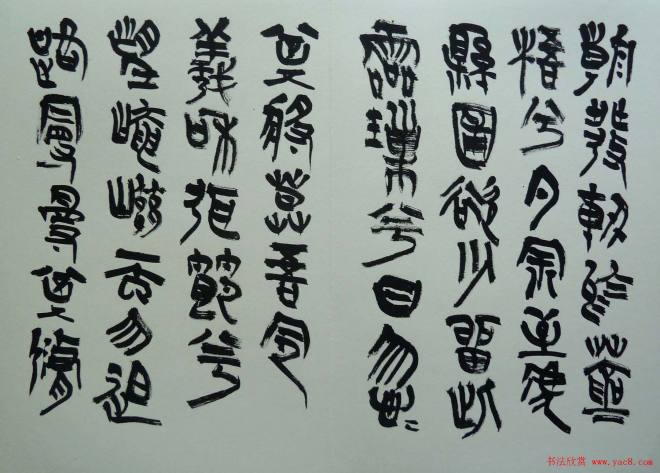 朝發軔於蒼
梧兮夕余至乎
縣圃欲少留此
靈瑣兮日忽忽
其將莫吾令
羲和弭節兮
望崦嵫而勿迫
路曼曼其脩
书法欣赏 www.yac8.com